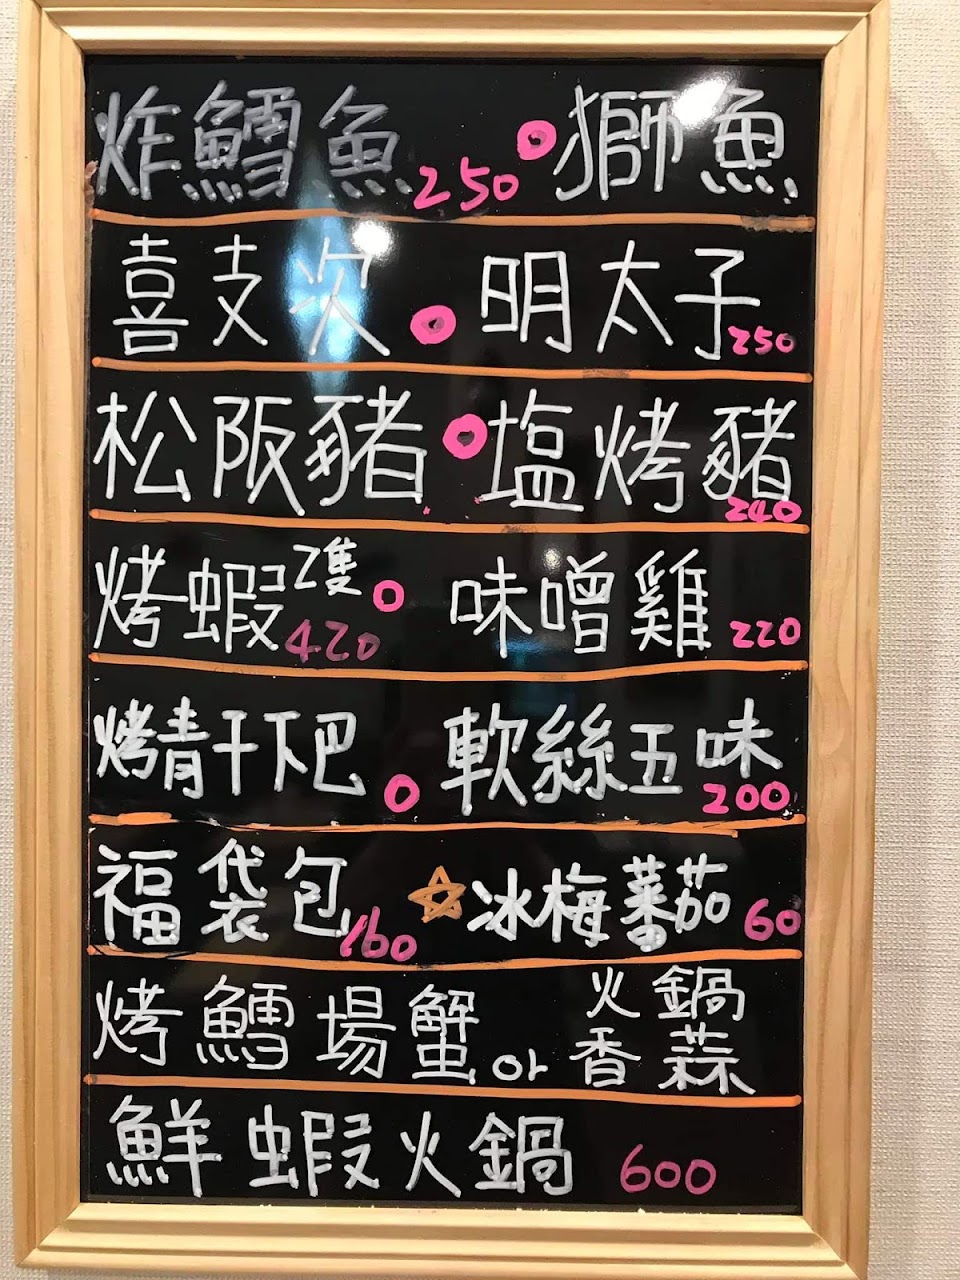 炸鱈魚 250 獅魚
喜支次 明太子 250
松阪豬 塩烤豬 240
烤蝦 2隻 420 味噌雞 220
烤青干下巴 軟絲五味 200
福袋包 160 冰梅蕃茄 60
烤鱈場蟹 or 火鍋 香蒜
鮮蝦火鍋 600